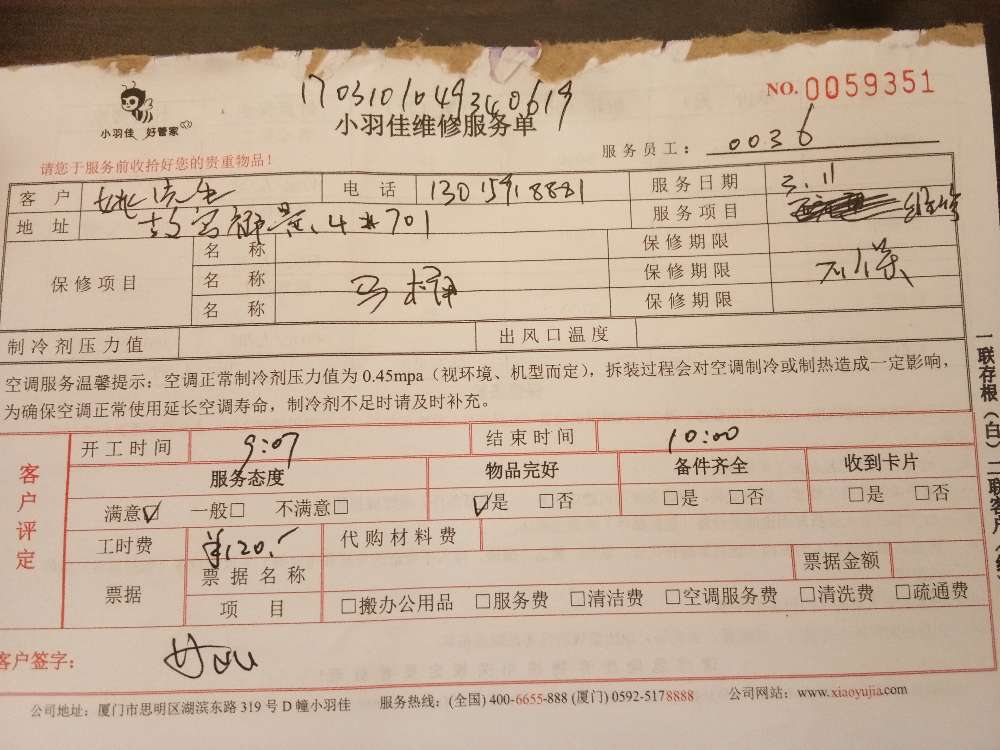 1703101049340619
NO.0059351
小羽佳 好管家
小羽佳维修服务单
请您于服务前收拾好您的贵重物品！
服务员工： 0036
客户 姚先生 电话 服务日期 3.11
地址 4#701 服务项目 维修
保修项目 名称 保修期限
名称 马桶 保修期限 不保
名称 保修期限
制冷剂压力值 出风口温度
空调服务温馨提示：空调正常制冷剂压力值为 0.45mpa（视环境、机型而定），拆装过程会对空调制冷或制热造成一定影响，
为确保空调正常使用延长空调寿命，制冷剂不足时请及时补充。
客户评定
开工时间 9:07 结束时间 10:00
服务态度 物品完好 备件齐全 收到卡片
满意☑ 一般□ 不满意□ ☑是 □否 □是 □否 □是 □否
工时费 ¥120. 代购材料费
票据 票据名称 票据金额
项目 □搬办公用品 □服务费 □清洁费 □空调服务费 □清洗费 □疏通费
客户签字：
公司地址：厦门市思明区湖滨东路 319 号 D 幢小羽佳 服务热线：(全国) 400-6655-888 (厦门) 0592-5178888 公司网站：www.xiaoyujia.com
一联存根（白）二联客户